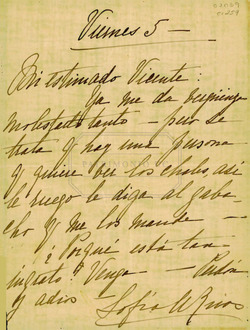 Viernes 5 —
Mi estimado Vicente:
Ya me da
molestarlo tanto — pero se
trata q hay una persona
q quiere ver los chales, así
le ruego le diga al gaba
cho q me los mande —
¿Porqué está tan
ingrato? Venga —
y adios — Sofía